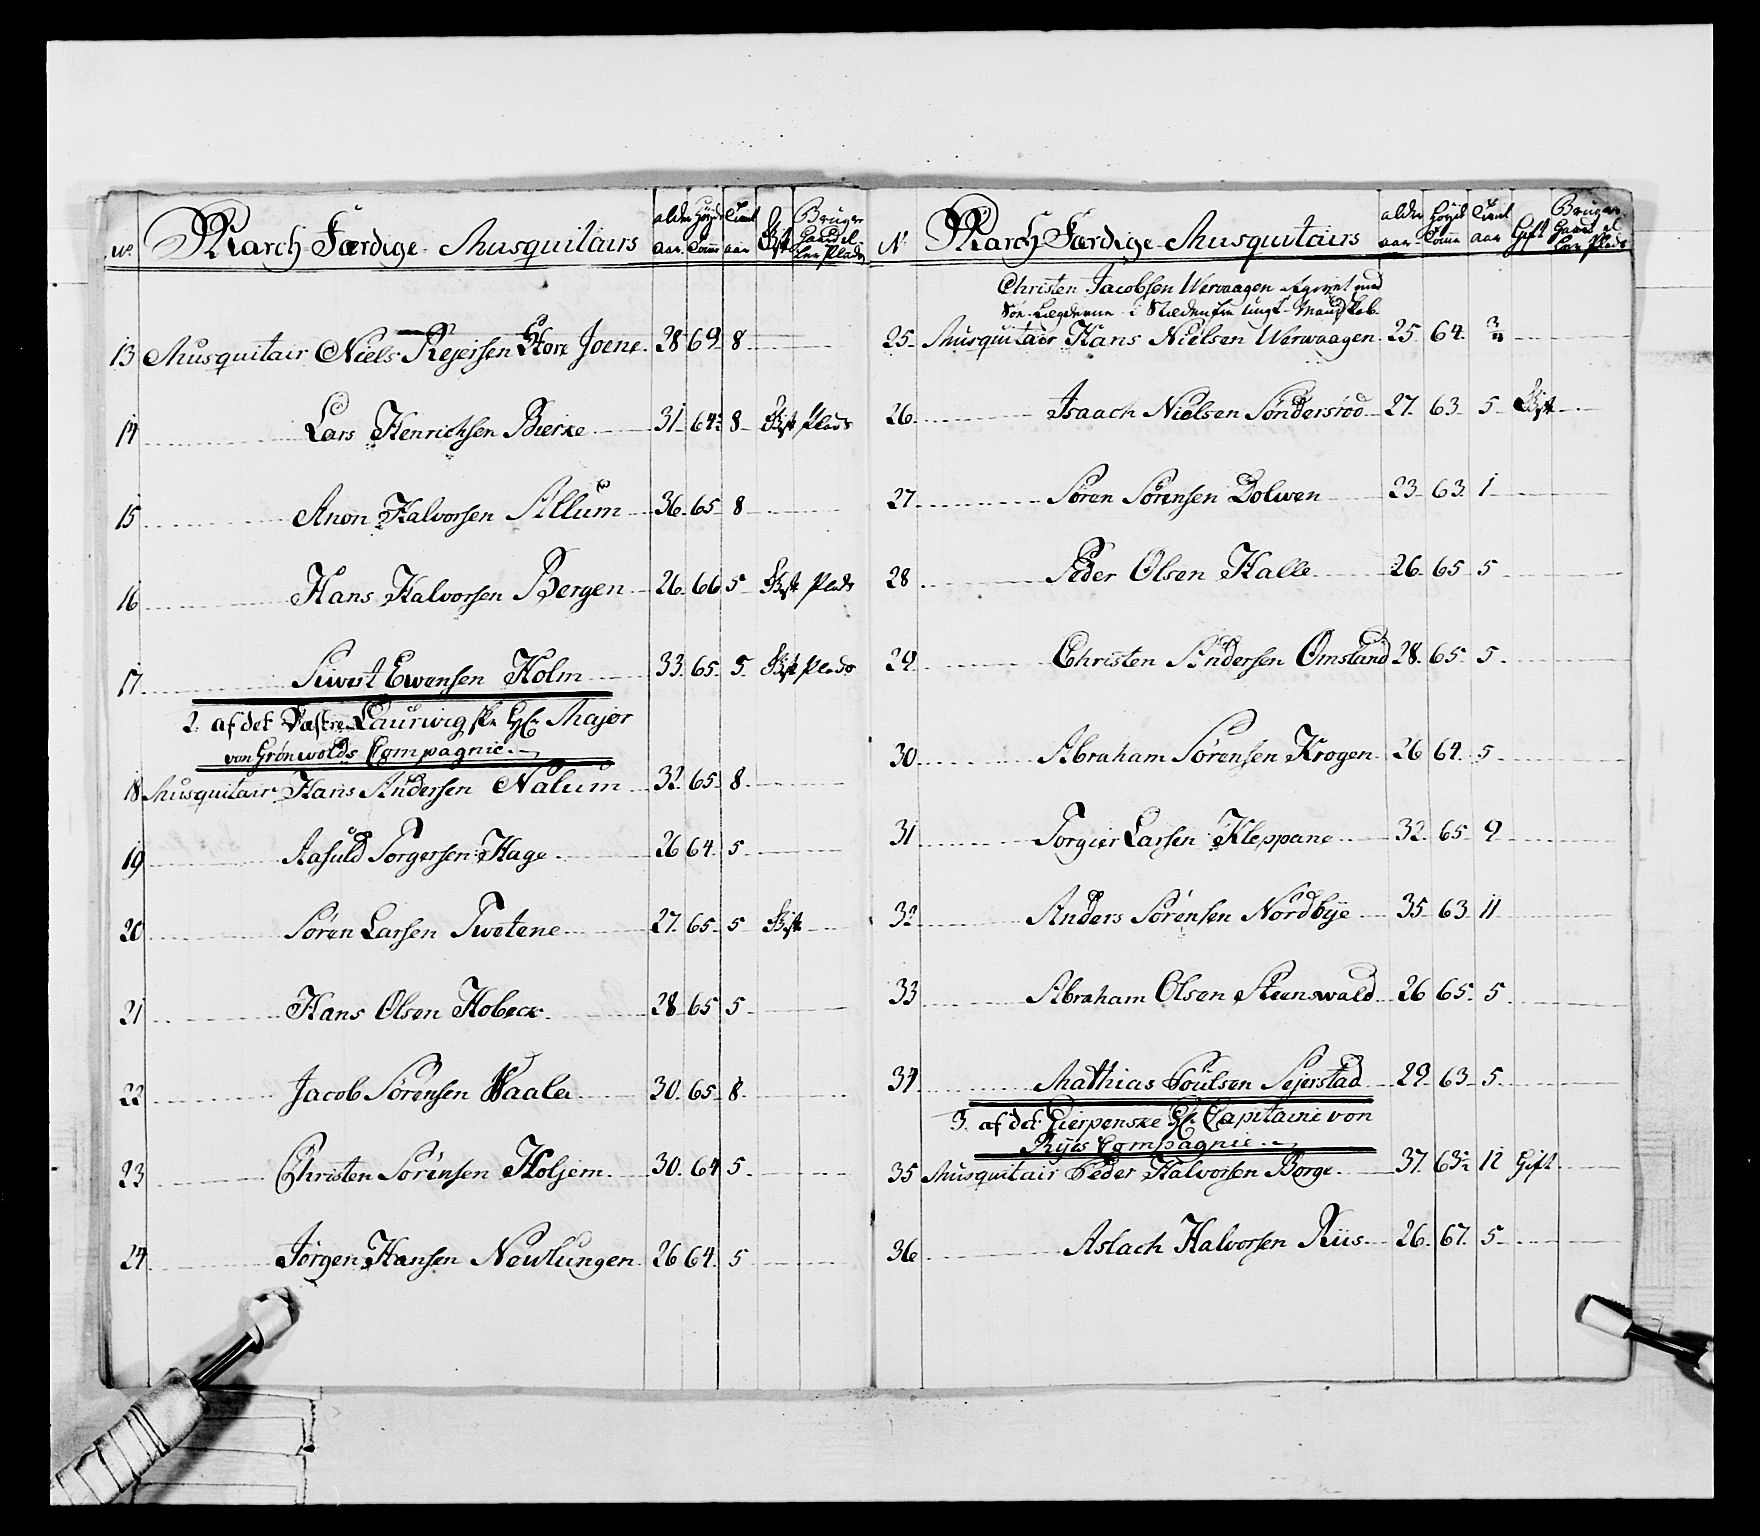 No. March Færdige Musquitairs alder aar. Høyde Tome Tient aar Gift Bruger Gaard el ler Plads
13 Musquitair Niels Rejersen Store Joene 28 69 8
14 Lars Henrichsen Bierke 31 64½ 8 Gift Plads
15 Anon Halvorsen Allum 36 65 8
16 Hans Halvorsen Bergen 26 66 5 Gift Plads
17 Siwert Ewensen Holm 33 65 5 Gift Plads
2. af det Laurwigske Hr. Major
von Grönwolds Compagnie.
18 Musquitair Hans Andersen Nalum 32 65 8
19 Aasuld Torgersen Hage 26 64 5
20 Sören Larsen Twetene 27 65 5 Gift
21 Hans Olsen Hobeck 28 65 5
22 Jacob Sörensen Waaler 30 65 8
23 Christen Sörensen Holjem 30 64 5
24 Jörgen Hansen Newlungen 26 64 5
No. March Færdige Musquitairs alder aar Høyde Tome Tient aar Gift Bruger Gaard el ler Plads
Christen Jacobsen Werwaagen
25 Musquitair Hans Nielsen Werwaagen 25 64
26 Isaach Nielsen Söndersrod 27 63 5 Gift
27 Sören Sörensen Dolwen 23 63 1
28 Peder Olsen Halle 26 65 5
29 Christen Andersen Omsland 28 65 5
30 Abraham Sörensen Krogen 26 64 5
31 Torgier Larsen Kleppane 32 65 9
32 Anders Sörensen Nordbye 35 63 11
33 Abraham Olsen Steenswald 26 65 5
34 Mathias Poulsen Sejerstad 29 63 5
3. af det Gierpenske Hr. Capitaine von
Rÿes Compagnie.
35 Musquitair Peder Halvorsen Borge 37 63½ 12 Gift
36 Aslach Halvorsen Riis 26 67 5